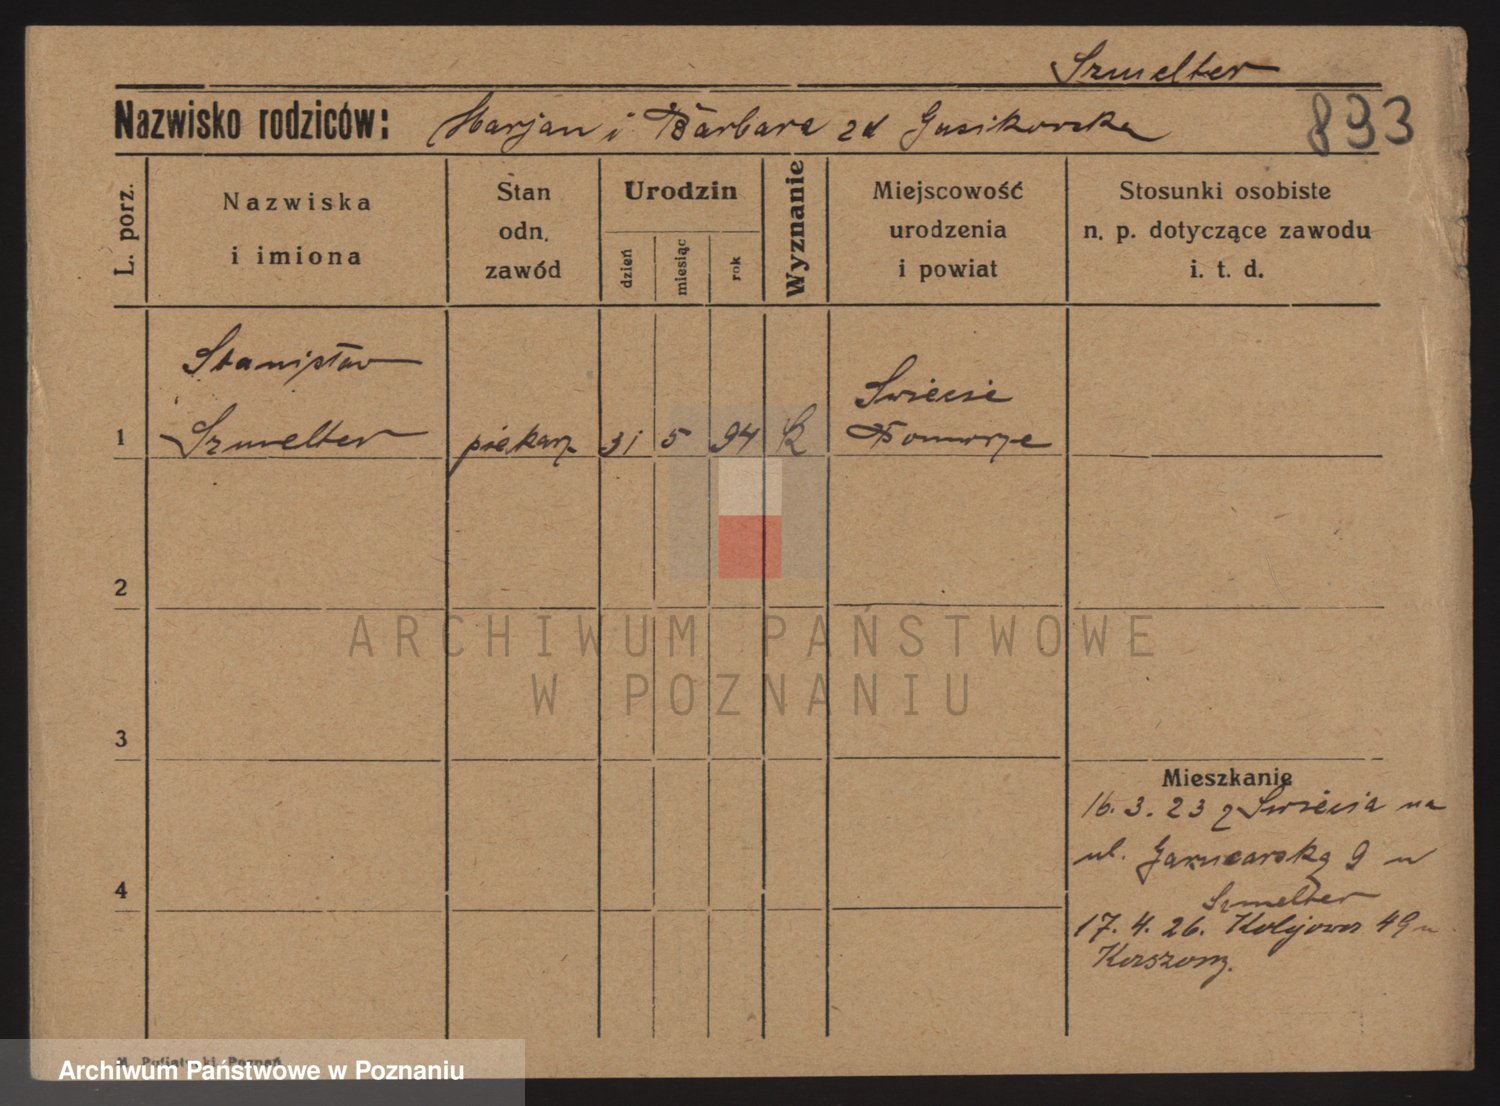 Szmelter
Nazwisko rodziców: Marjan i Barbara zd Gusikowska
893
L. porz.
Nazwiska
i imiona
Stan
odn.
zawód
Urodzin
dzień
miesiąc
rok
Wyznanie
Miejscowość
urodzenia
i powiat
Stosunki osobiste
n. p. dotyczące zawodu
i. t. d.
Stanisław
1 Szmelter piekarz 31 5 94 K Swiecie
Pomorze
2
3
4
Mieszkanie
16. 3. 23 z Swiecia na
ul. Garncarską 9 u
Szmelter
17. 4. 26. Kolejowa 49 u
ARCHIWUM PAŃSTWOWE
W POZNANIU
Poznań
Archiwum Państwowe w Poznaniu